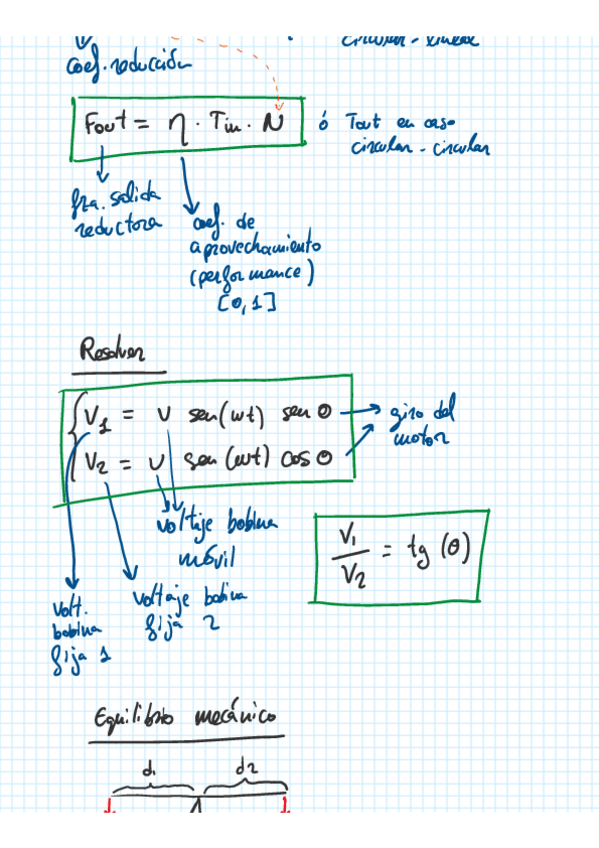 circular - lineal
coef. reducción
Fout = η · Tin · N
ó Tout en caso
circular - circular
fza. salida
reductora
coef. de
aprovechamiento
(performance)
[0,1]
Resolver
V1 = V sen(wt) sen θ
V2 = V sen(wt) cos θ
giro del
motor
voltaje bobina
móvil
V1/V2 = tg (θ)
Volt.
bobina
fija 1
voltaje bobina
fija 2
Equilibrio mecánico
d1 d2